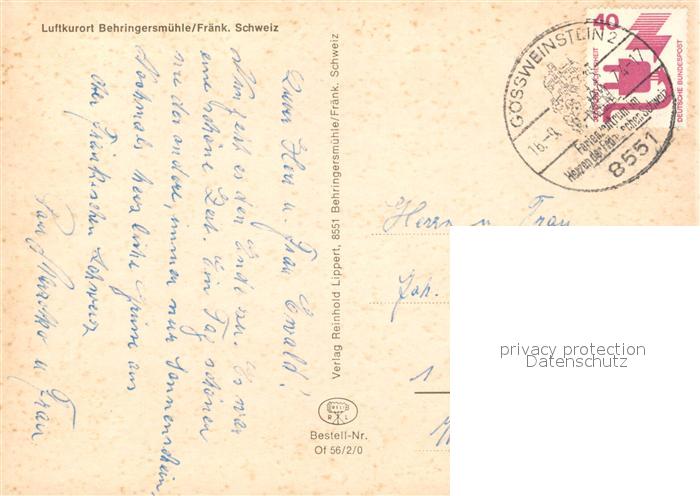 Luftkurort Behringersmühle/Fränk. Schweiz
Lieber Herr u. Frau Ewald!
Nun geht es dem Ende zu. Es war
eine schöne Zeit. Ein Tag schöner
wie der andere, immer nur Sonnenschein,
Nochmals herzliche Grüsse aus
der Fränkischen Schweiz
u. Frau
Verlag Reinhold Lippert, 8551 Behringersmühle/Fränk. Schweiz
R L
Bestell-Nr.
Of 56/2/0
GÖSSWEINSTEIN 2
8551
Ferienzentrum im
Herzen der Fränkischen Schweiz
40
DEUTSCHE BUNDESPOST
Herrn u. Frau
Joh.
1
privacy protection
Datenschutz